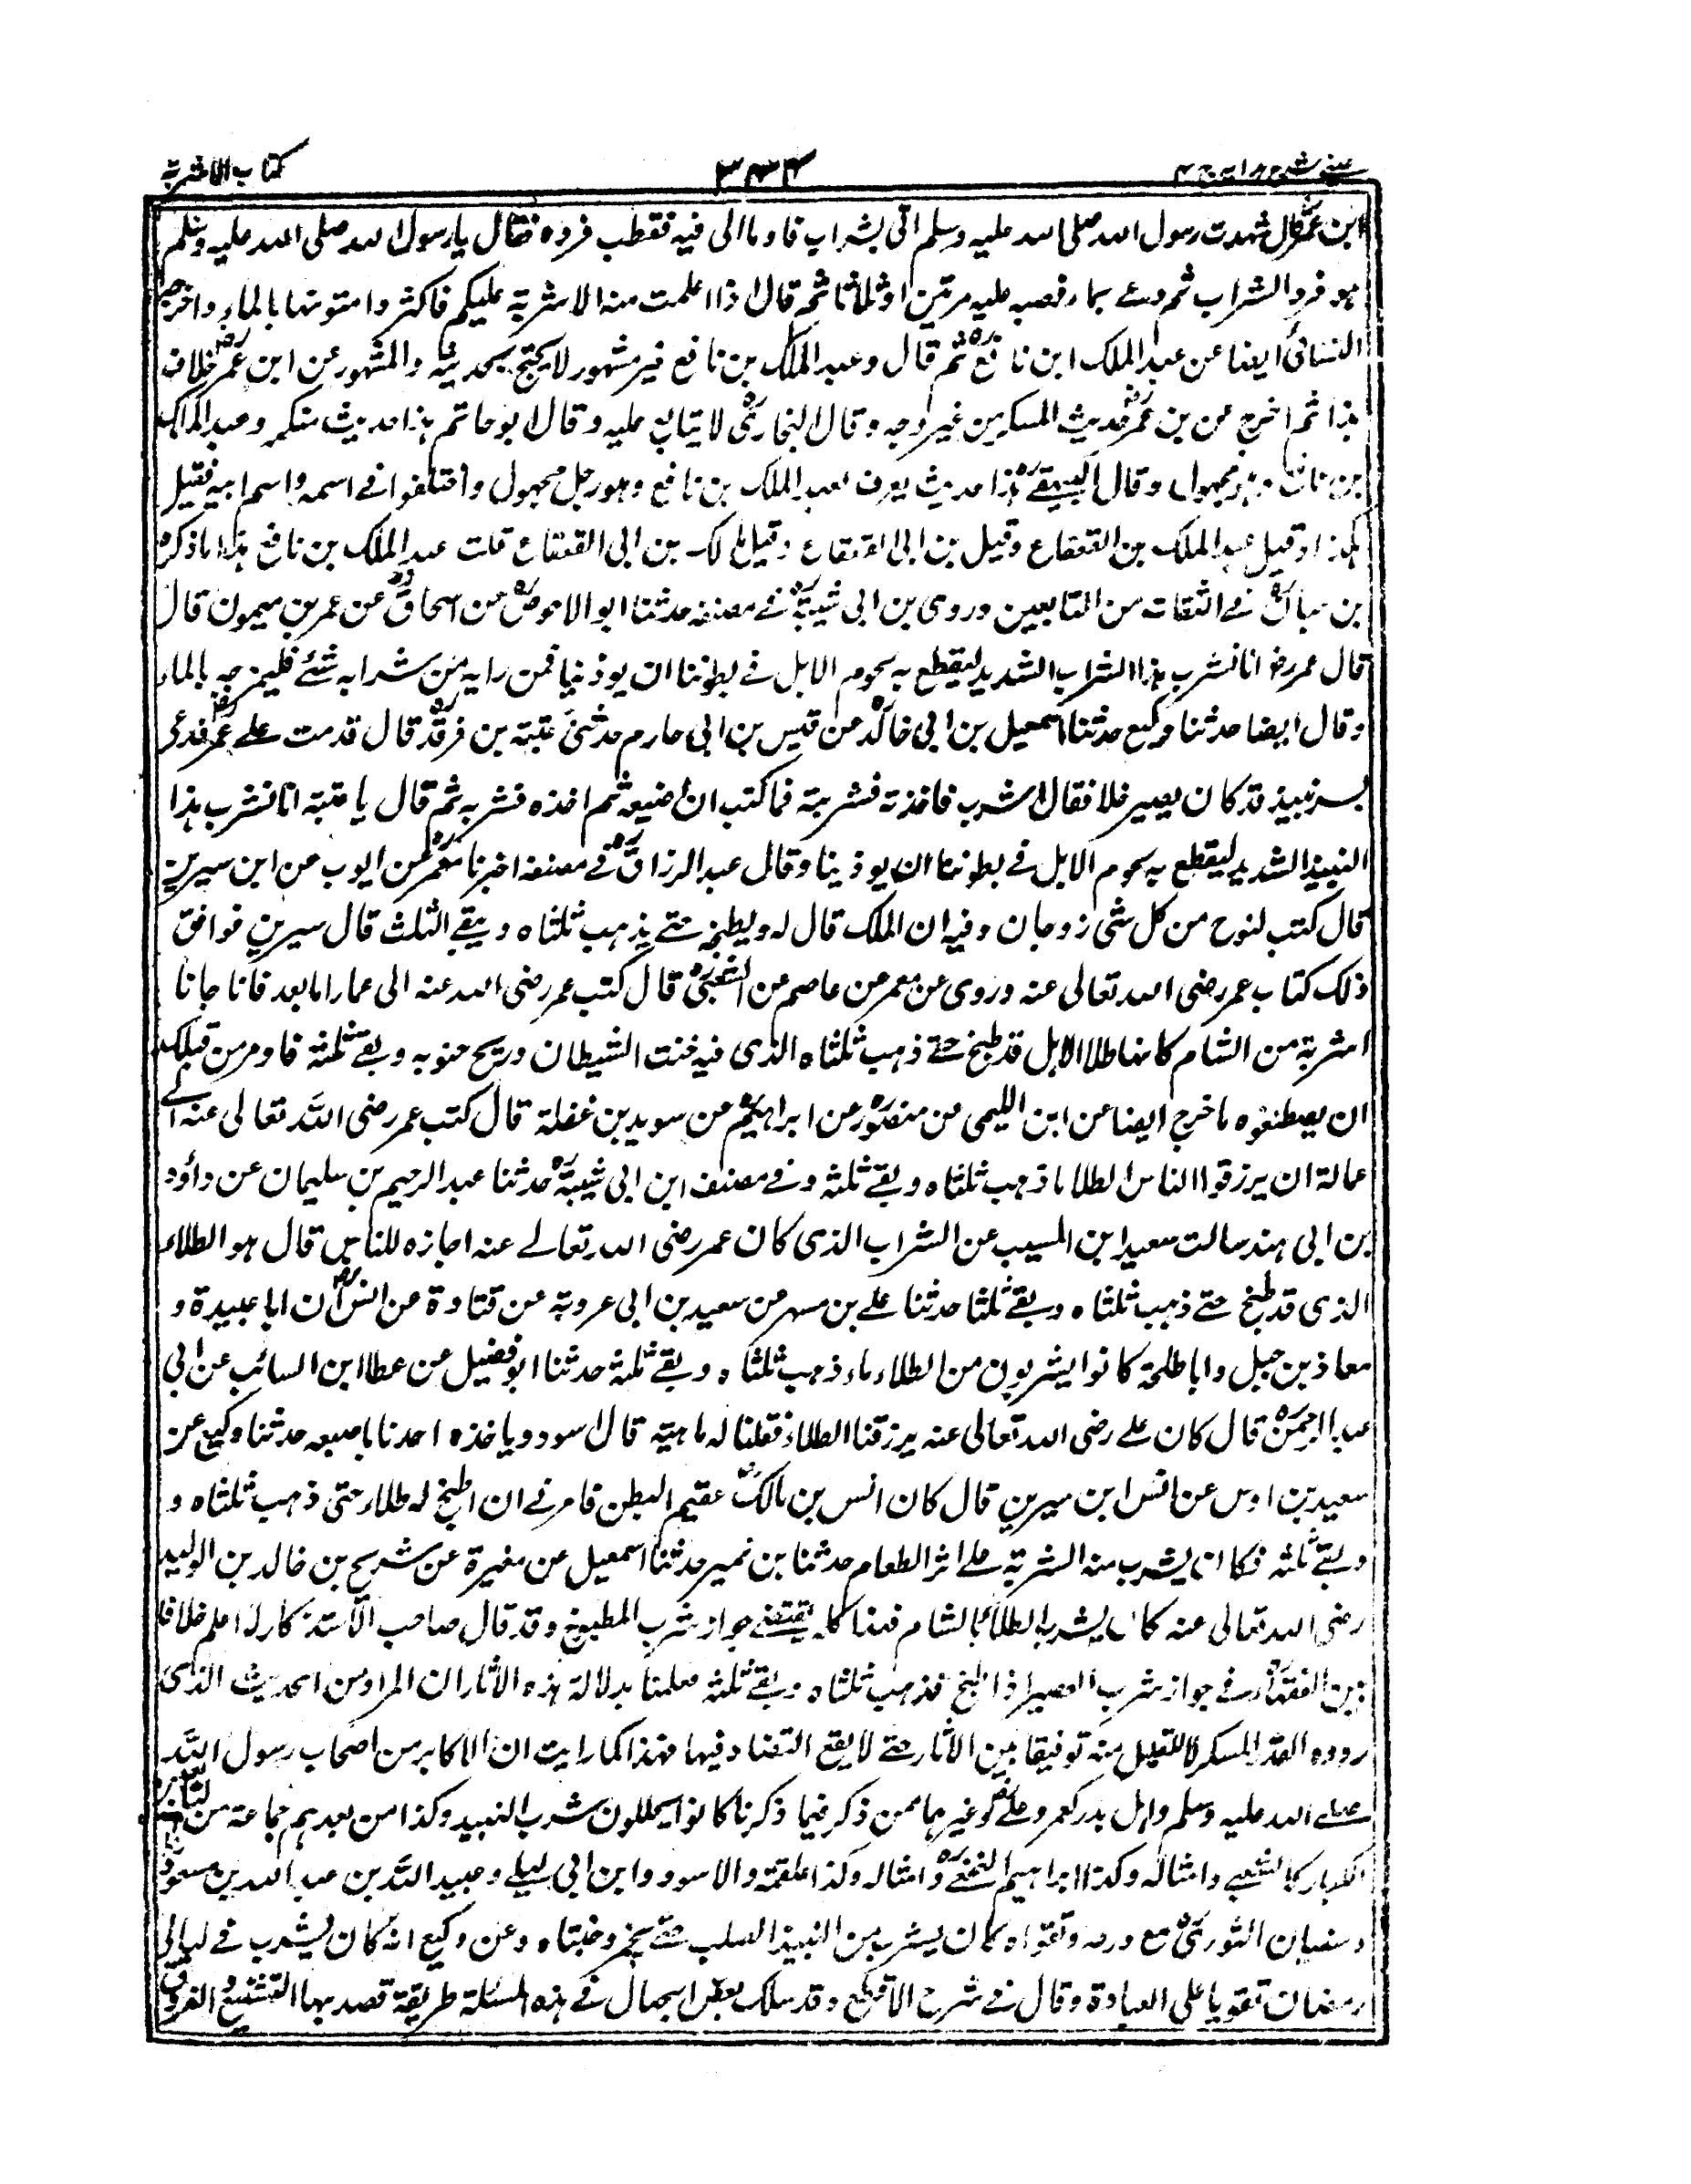 عینی شرح ہدایہ ج ۴
۳۴۴
کتاب الاشربة
ابن عمر قال شهدت رسول الله صلى الله عليه وسلم اتى بشراب فادناه الى فيه فقطب فرده فقال يا رسول الله صلى الله عليه وسلم
هو فرد الشراب ثم دعى بماء فصبه عليه مرتين او ثلاثا ثم قال اذا اعلمت منه الاشربة عليكم فاكثروا متونها بالماء واخرجه
النسائى ايضا عن عبد الملك ابن نافع ثم قال وعبد الملك بن نافع غير مشهور لا يحتج بحديثه والمشهور عن ابن عمر خلاف
هذا ثم اخرج عن بن عمر حديث المسكر من غير وجه وقال البخارى لا يتابع عليه وقال ابو حاتم هذا حديث منكر وعبد الملك
بن نافع مجهول وقال البيهقى هذا حديث يعرف بعبد الملك بن نافع وهو رجل مجهول واختلفوا فى اسمه واسم ابيه فقيل
هكذا وقيل عبد الملك بن القعقاع وقيل بن ابى القعقاع وقيل مالك بن ابى القعقاع قلت عبد الملك بن نافع هذا ذكره
بن حبان فى الثقات من التابعين وروى بن ابى شيبة فى مصنفه حدثنا ابو الاحوص عن اسحاق عن عمر بن ميمون قال
قال عمر رض انا نشرب هذا الشراب الشديد ليقطع به لحوم الابل فى بطوننا ان يوذينا فمن رابه من شرابه شئ فليمزجه بالماء
وقال ايضا حدثنا وكيع حدثنا اسمعيل بن ابى خالد عن قيس بن ابى حازم حدثنى عتبة بن فرقد قال قدمت على عمر فدعى
بسر نبيذ قد كان يصير خلا فقال اشرب فاخذته فشربته فما كتب ان اضيعه ثم اخذه فشربه ثم قال يا عتبة انا نشرب هذا
النبيذ الشديد ليقطع به لحوم الابل فى بطوننا ان يوذينا وقال عبد الرزاق فى مصنفه اخبرنا معمر عن ايوب عن ابن سيرين
قال كتب لنوح من كل شئ زوجان وفيه ان الملك قال له ويطبخه حتى يذهب ثلثاه ويبقى الثلث قال سيرين فوافق
ذلك كتاب عمر رضى الله تعالى عنه وروى عن معمر عن عاصم عن الشعبى قال كتب عمر رضى الله عنه الى عمار اما بعد فانا جانا
اشربة من الشام كانها طلا الابل قد طبخ حتى ذهب ثلثاه الذى فيه خنت الشيطان وريح جنوبه وبقى ثلثه فاومر من قبلك
ان يصطنعوه ما خرج ايضا عن ابن التيمى عن منصور عن ابراهيم عن سويد بن غفلة قال كتب عمر رضى الله تعالى عنه الى
عماله ان يرزقوا الناس الطلا ما ذهب ثلثاه وبقى ثلثه وفى مصنف ابن ابى شيبة حدثنا عبد الرحيم بن سليمان عن داؤد
بن ابى هند سالت سعيد ابن المسيب عن الشراب الذى كان عمر رضى الله تعالى عنه اجازه للناس قال هو الطلاء
الذى قد طبخ حتى ذهب ثلثاه وبقى ثلثا حدثنا على بن مسهر عن سعيد بن ابى عروبة عن قتادة عن انس ان ابا عبيدة و
معاذ بن جبل وابا طلحة كانوا يشربون من الطلاء ماء ذهب ثلثاه وبقى ثلثه حدثنا ابو فضيل عن عطا ابن السائب عن ابى
عبد الرحمن قال كان على رضى الله تعالى عنه يرزقنا الطلاء فقلنا له ما هيته قال اسود وياخذه احدنا باصبعه حدثنا وكيع عن
سعيد بن اوس عن انس ابن سيرين قال كان انس بن مالك عقيم البطن فامرنى ان اطبخ له طلاء حتى ذهب ثلثاه و
وبقى ثلثه فكان يشرب منه الشربة على اثر الطعام حدثنا بن نمير حدثنا اسمعيل عن مغيرة عن شريح بن خالد بن الوليد
رضى الله تعالى عنه كان يشرب الطلاء بالشام فهذا كله يقتضى جواز شرب المطبوخ وقد قال صاحب الاستذكار لا اعلم خلافا
بين الفقهاء فى جواز شرب العصير اذا طبخ فذهب ثلثاه وبقى ثلثه فعلمنا بدلالة هذه الاثار ان المراد من الحديث الذى
رووه القدر المسكر لا القليل منه توفيقا بين الاثار حتى لا يقع التضاد فيها فهذا كما رايت ان الاكابر من اصحاب رسول الله
صلى الله عليه وسلم واهل بدر كعمر وعلى وغيرهما ممن ذكر فيما ذكرنا كانوا يحللون شرب النبيذ وكذا من بعدهم جماعة من التابعين
الكبار كالشعبى وامثاله وكذا ابراهيم النخعى وامثاله وكذا علقمة والاسود وابن ابى ليلى وعبيد الله بن عبد الله بن مسعود
وسفيان الثورى مع ورعه وتقواه كان يشرب من النبيذ الصلب حتى يحمر وجنتاه وعن وكيع انه كان يشرب فى ليالى
رمضان تقويا على العبادة وقال فى شرح الاقطع وقد سلك بعض الجهال فى هذه المسئلة طريقة قصد بها التشنيع